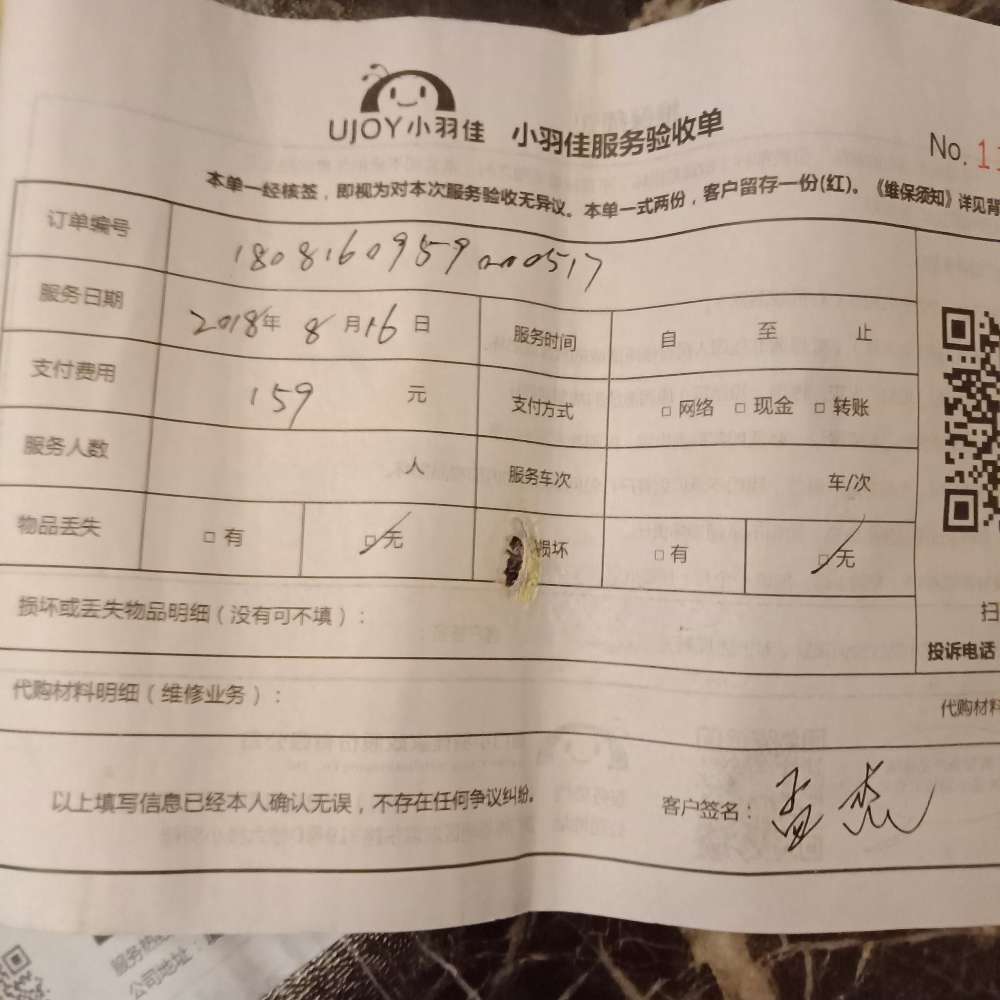 UJOY小羽佳 小羽佳服务验收单
No. 1
本单一经核签，即视为对本次服务验收无异议。本单一式两份，客户留存一份(红)。《维保须知》详见背
订单编号 180816095900517
服务日期 2018年 8 月16 日 服务时间 自 至 止
支付费用 159 元 支付方式 □网络 □现金 □转账
服务人数 人 服务车次 车/次
物品丢失 □有 □无 损坏 □有 □无
损坏或丢失物品明细（没有可不填）：
扫
投诉电话
代购材料明细（维修业务）：
代购材料
以上填写信息已经本人确认无误，不存在任何争议纠纷。
客户签名：
服务热
公司地址：